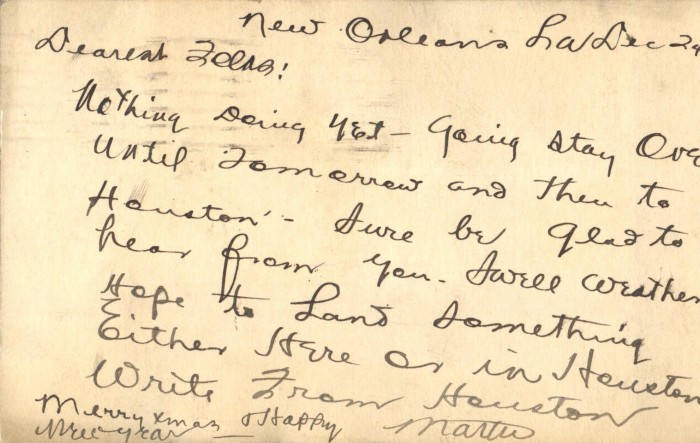 New Orleans La Dec 29
Dearest Folks!
Nothing Doing Yet - Going Stay Over
Until Tomorrow and Then to
Houston - Sure be Glad to
hear from you. Swell Weather
Hope to Land Something
Either Here or in Houston
Write From Houston
Merry Xmas & Happy
New Year - Martin